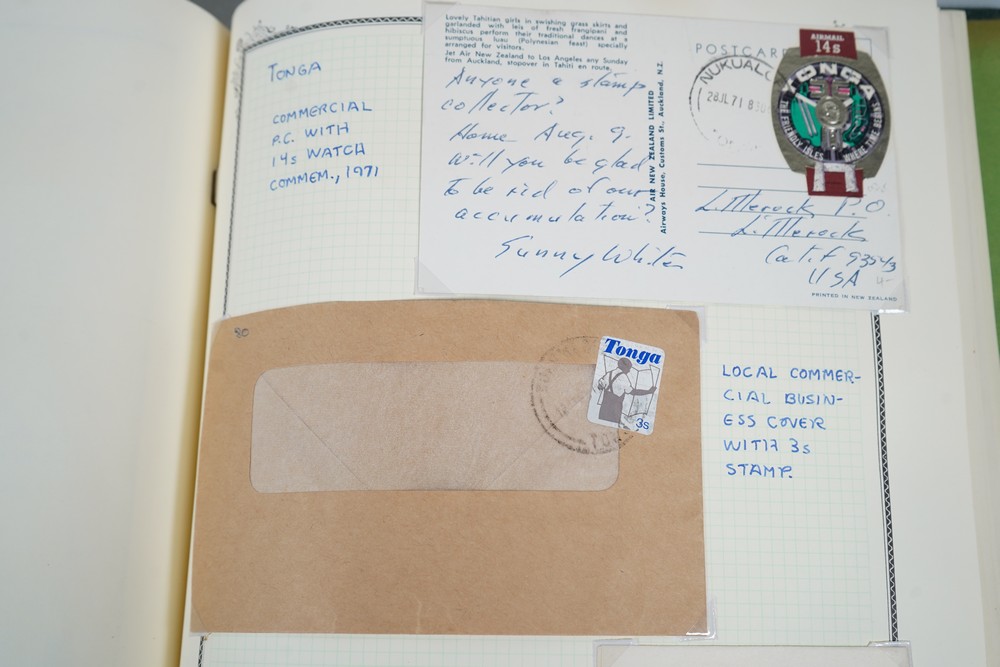 TONGA
COMMERCIAL
P.C. WITH
14s WATCH
COMMEM., 1971
Lovely Tahitian girls in swishing grass skirts and
garlanded with leis of fresh frangipani and
hibiscus perform their traditional dances at a
sumptuous luau (Polynesian feast) specially
arranged for visitors.
Jet Air New Zealand to Los Angeles any Sunday
from Auckland, stopover in Tahiti en route.
Anyone a stamp
collector?
Home Aug. 9.
Will you be glad
to be rid of our
accumulation?
Sunny White
AIR NEW ZEALAND LIMITED
Airways House, Customs St., Auckland, N.Z.
POSTCARD
NUKUALO
28JL71 830
AIRMAIL
14s
TONGA
THE FRIENDLY ISLES
WHERE TIME BEGINS
L. Merock P.O.
L. Merock
Calif 93543
USA
PRINTED IN NEW ZEALAND
80
Tonga
3s
LOCAL COMMER-
CIAL BUSIN-
ESS COVER
WITH 3s
STAMP.